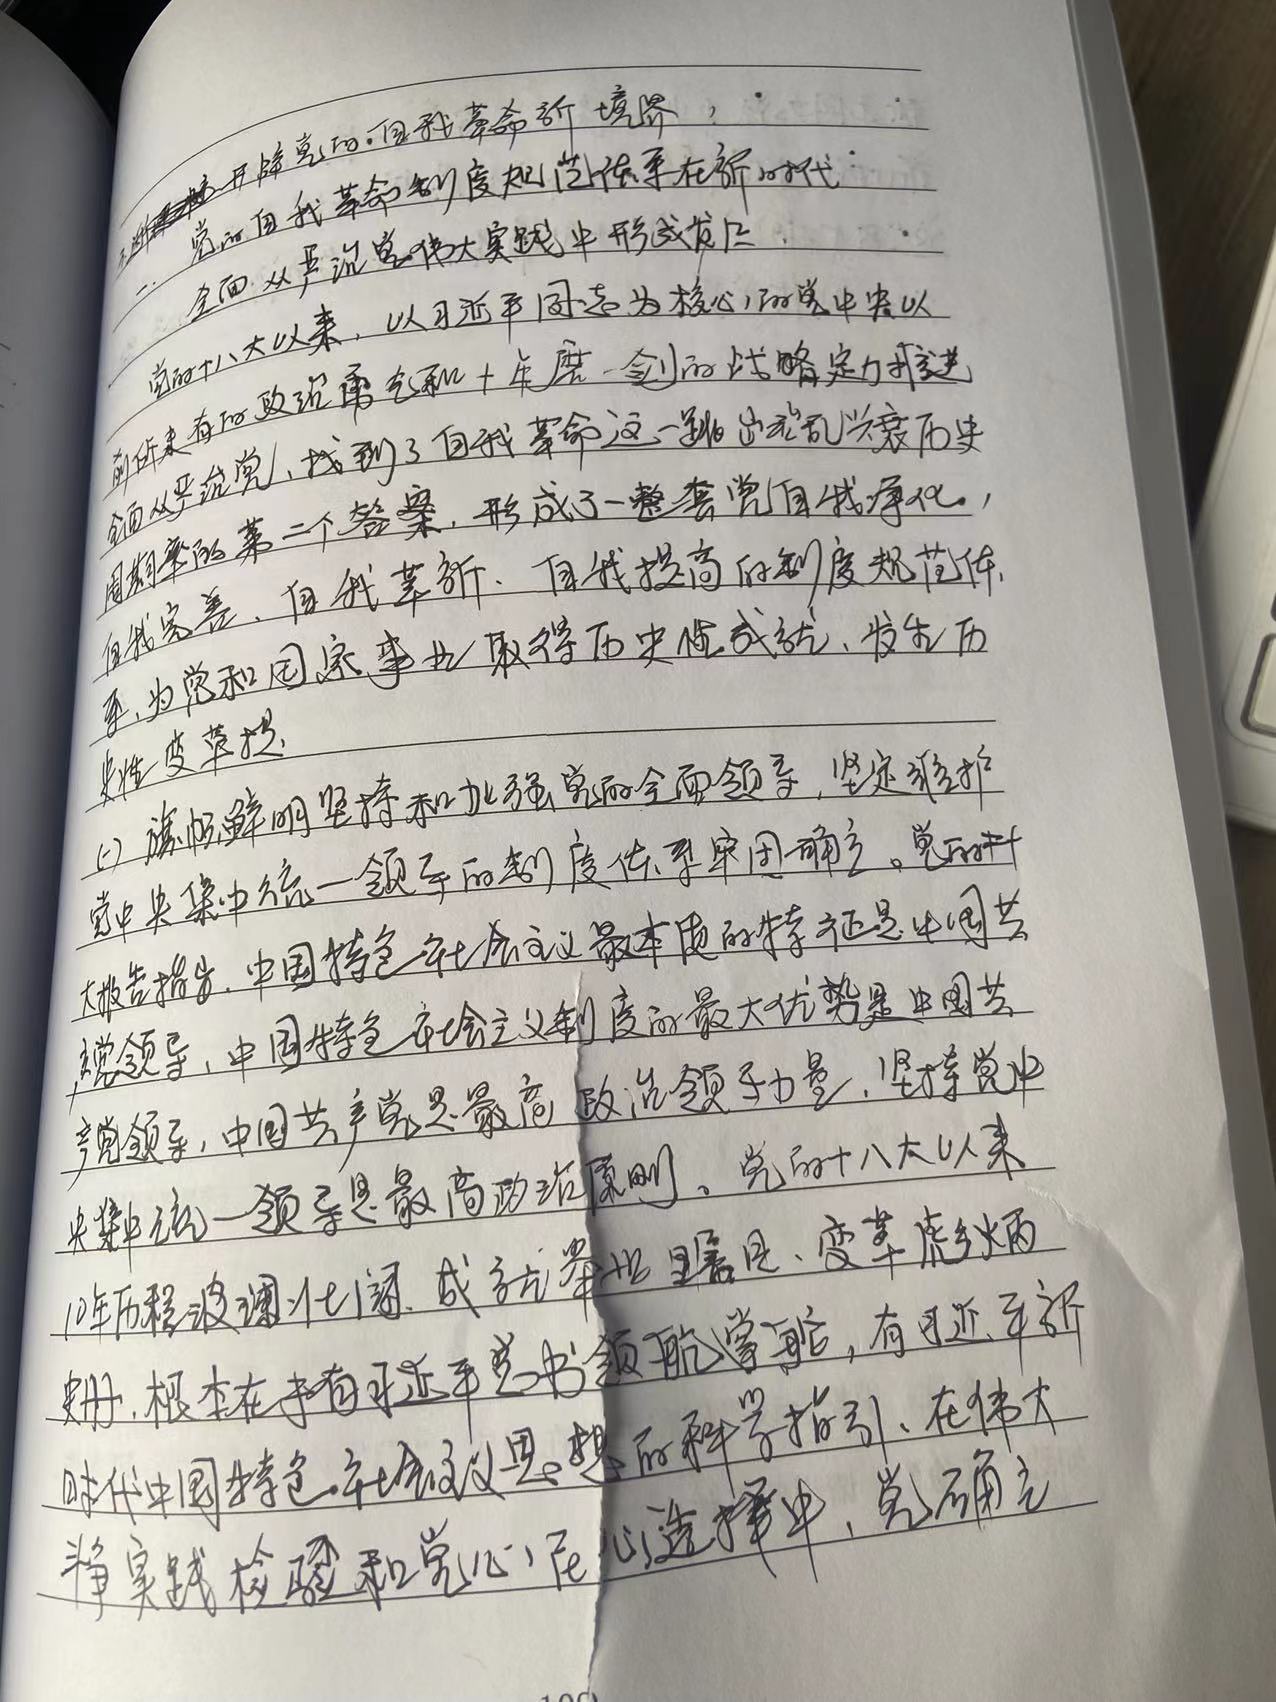 开辟党的自我革命新境界,
二. 党的自我革命制度规范体系在新时代
全面从严治党伟大实践中形成发展.
党的十八大以来, 以习近平同志为核心的党中央以
前所未有的政治勇气和十年磨一剑的战略定力推进
全面从严治党, 找到了自我革命这一跳出治乱兴衰历史
周期率的第二个答案, 形成了一整套党自我净化,
自我完善、自我革新、自我提高的制度规范体
系, 为党和国家事业取得历史性成就、发生历
史性变革提
(一) 旗帜鲜明坚持和加强党的全面领导, 坚定维护
党中央集中统一领导的制度体系牢固确立。党的
大报告指出, 中国特色社会主义最本质的特征是中国共
产党领导, 中国特色社会主义制度的最大优势是中国共
产党领导, 中国共产党是最高政治领导力量, 坚持党中
央集中统一领导是最高政治原则。党的十八大以来
10年历程波澜壮阔, 成就举世瞩目、变革彪炳
史册, 根本在于有习近平总书领航掌舵, 有习近平新
时代中国特色社会主义思想的科学指引、在伟大
斗争实践检验和党心民心选择中, 党确立